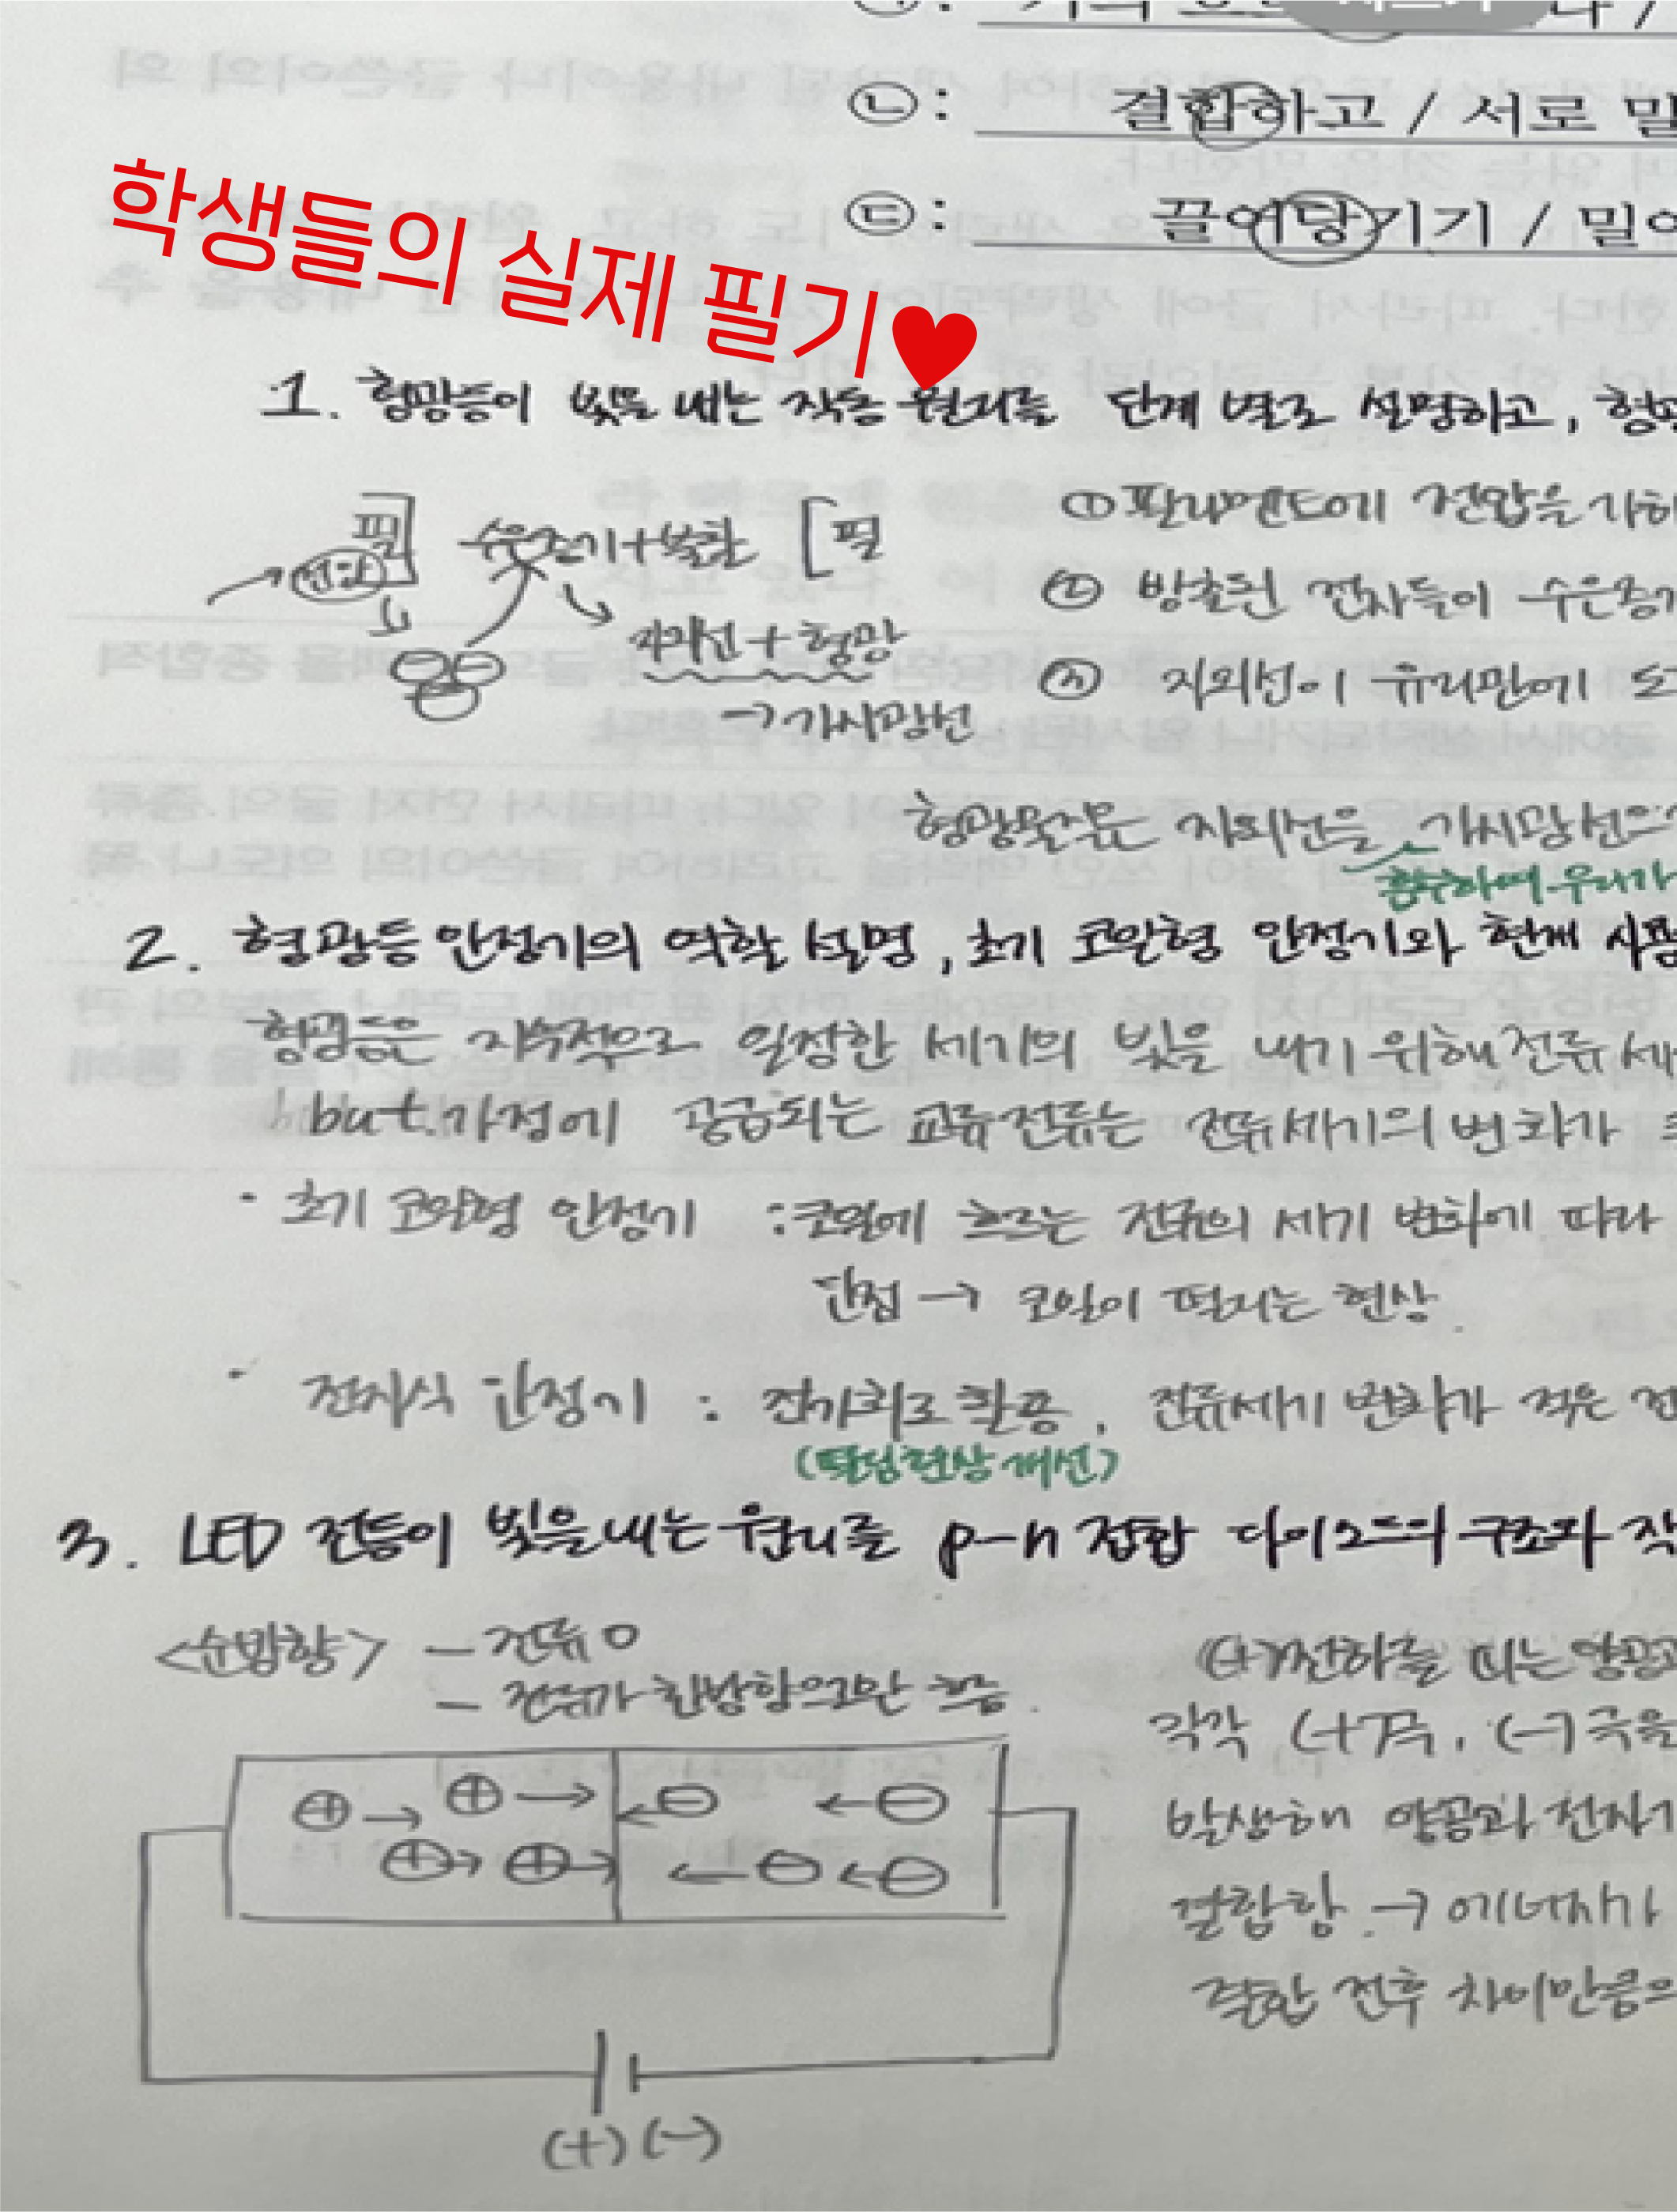 ㄴ: 결합하고 / 서로 밀
ㄷ: 끌어당기기 / 밀어
학생들의 실제 필기♥
1. 형광등이 빛을 내는 작동 원리를 단계 별로 설명하고, 형광
필 수은증기+불활 [필
전압
① 필라멘트에 전압을 가하
② 방출된 전자들이 수은증기
자외선 + 형광
③ 자외선이 유리관에 도
→가시광선
형광물질은 자외선을 가시광선으
흡수하여 우리가
2. 형광등 안정기의 역할 설명, 초기 코일형 안정기와 현재 사용
형광등은 지속적으로 일정한 세기의 빛을 내기 위해 전류 세
but 가정에 공급되는 교류전류는 전류세기의 변화가
· 초기 코일형 안정기 : 코일에 흐르는 전류의 세기 변화에 따라
단점 → 코일이 떨리는 현상.
· 전자식 안정기 : 전자회로 활용, 전류세기 변화가 적은 전
(떨림현상 개선)
3. LED 전등이 빛을 내는 원리를 p-n 접합 다이오드의 구조와 작
<순방향> - 전류 O
(+)전하를 띠는 양공과
- 전류가 한방향으로만 흐름.
각각 (+)극, (-)극을
⊕→ ⊕→ ←⊖ ←⊖
발생해 양공과 전자가
⊕→ ⊕→ ←⊖ ←⊖
결합함 → 에너지가
결합 전후 차이만큼의
(+) (-)